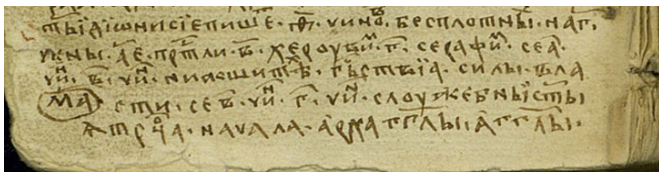 тыи дионисіе пише · г҃ · чино҃в · бесплотны · на г҃ ·
ужны · а҃е · пр҃тли · в҃ · хероуви҃м · г҃ · серафи҃м · се а҃ ·
чи҃н · в҃ · чи҃н · г҃ьствіа · силы · вла
сти · се в҃ · чи҃н · г҃ · чи҃н · слоужебныи сты
ѧ тр҃оца · начала · арха҃гг҃лы · а҃гг҃лы ·